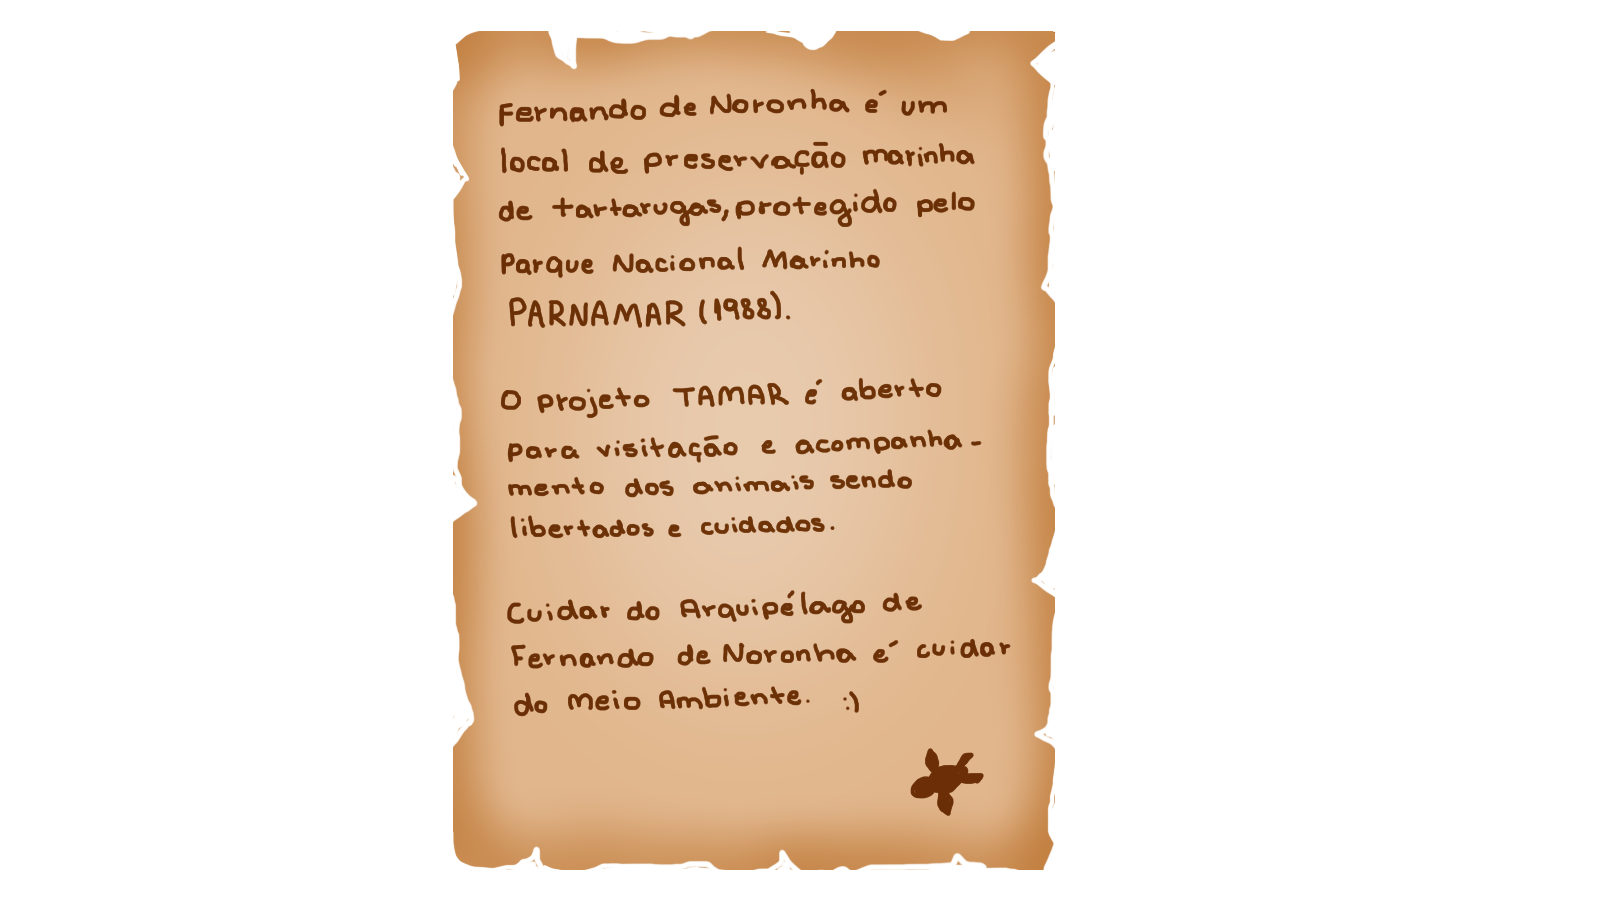 Fernando de Noronha é um
local de preservação marinha
de tartarugas, protegido pelo
Parque Nacional Marinho
PARNAMAR (1988).
O projeto TAMAR é aberto
para visitação e acompanha-
mento dos animais sendo
libertados e cuidados.
Cuidar do Arquipélago de
Fernando de Noronha é cuidar
do Meio Ambiente. :)